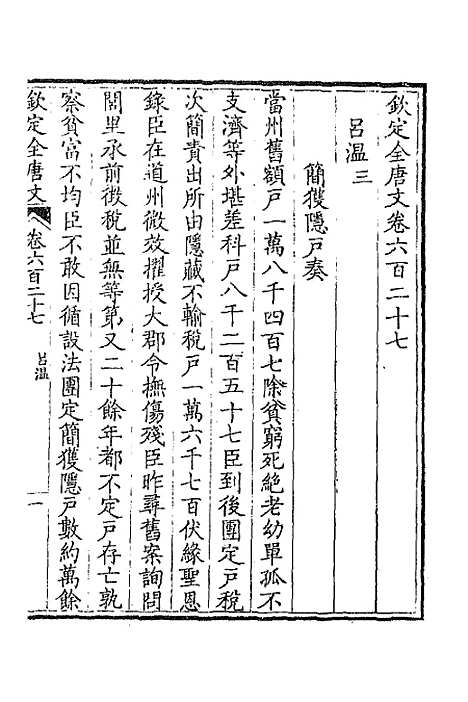 欽定全唐文卷六百二十七
呂溫三
簡獲隱戸奏
當州舊額戸一萬八千四百七除貧窮死絶老幼單孤不
支濟等外堪差科戸八千二百五十七臣到後團定戸稅
次簡責出所由隱藏不輸稅戸一萬六千七百伏緣聖恩
錄臣在道州微效擢授大郡令撫傷殘臣昨尋舊案詢問
閭里承前徵稅並無等第又二十餘年都不定戸存亡孰
察貧富不均臣不敢因循設法團定簡獲隱戸數約萬餘
欽定全唐文
卷六百二十七
呂溫
一